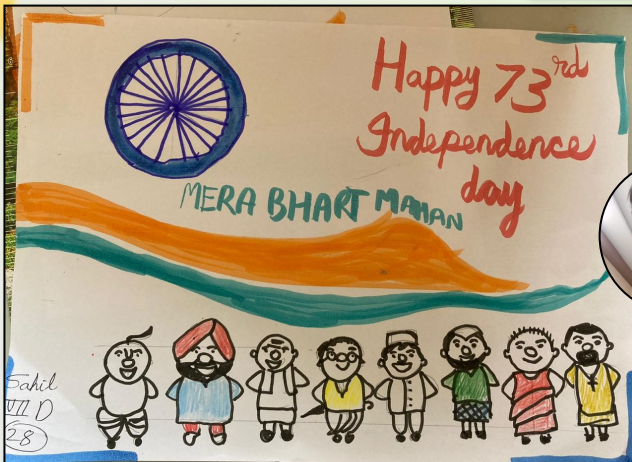 Happy 73rd
Independence
day
MERA BHART MAHAN
Sahil
VII D
28